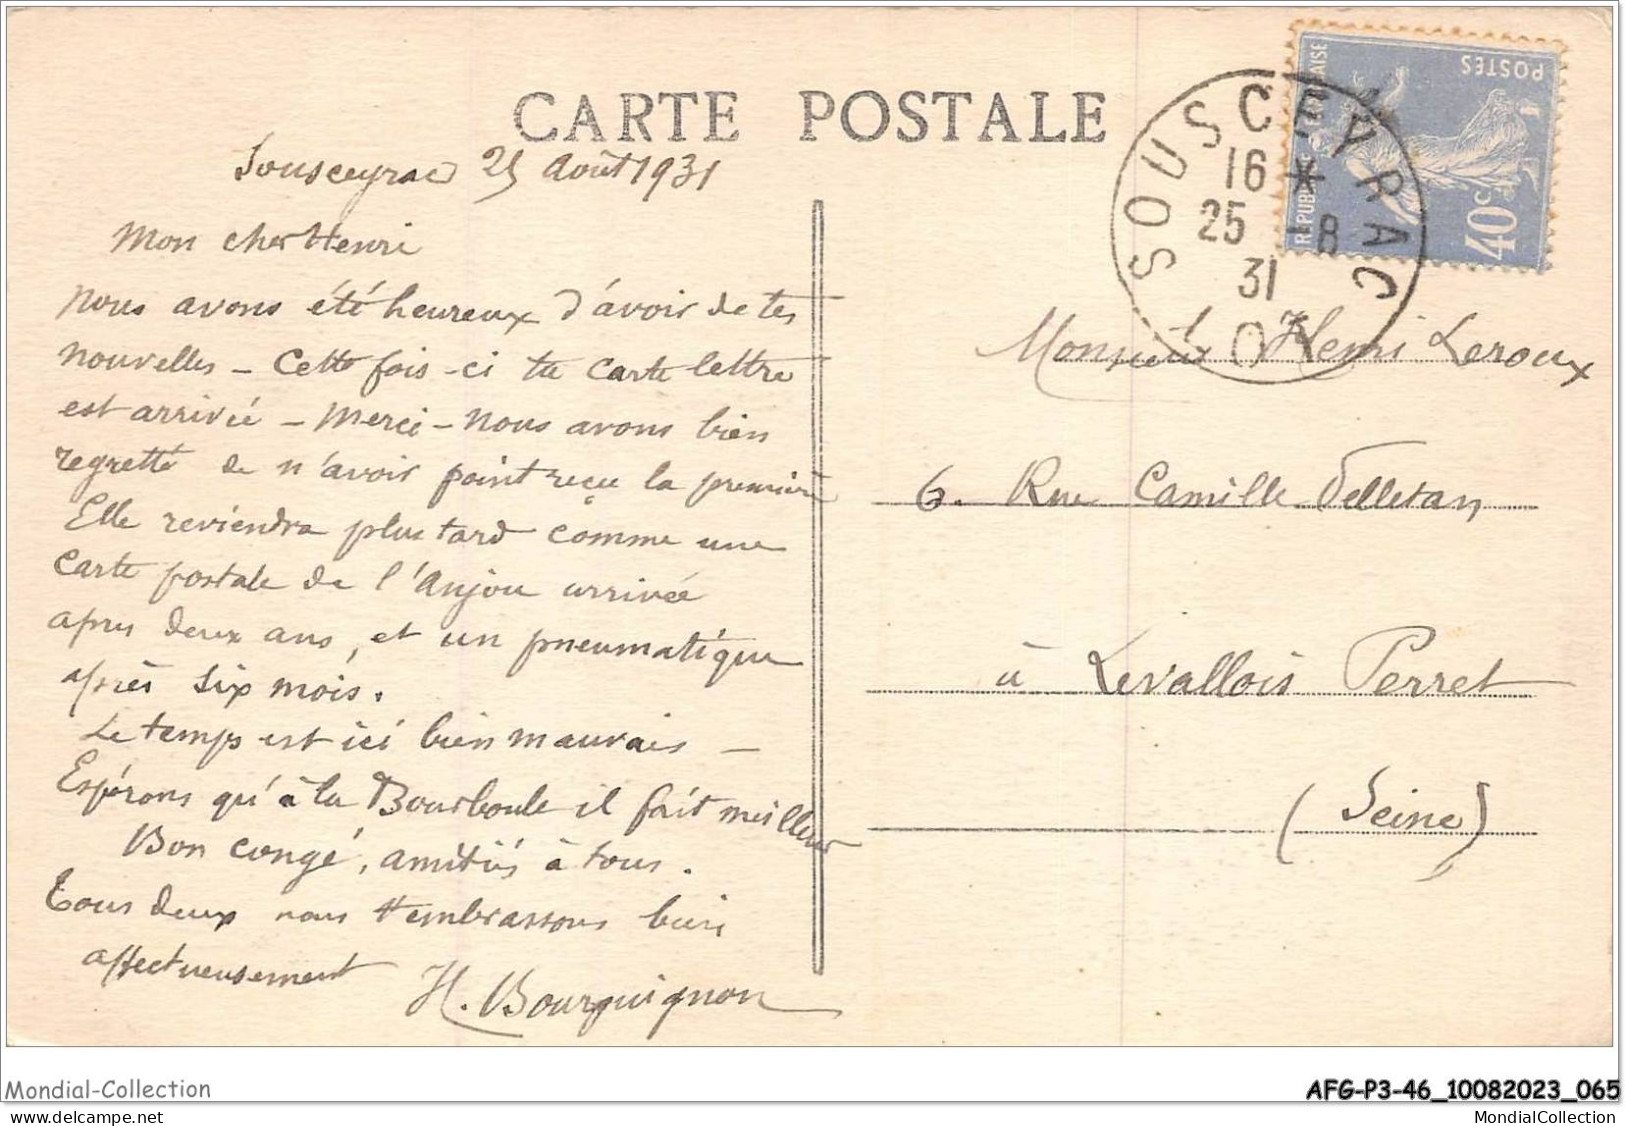 CARTE POSTALE
Sousceyrac 25 Août 1931
Mon cher Henri
Nous avons été heureux d'avoir de tes
nouvelles - Cette fois-ci ta carte lettre
est arrivée - Merci - Nous avons bien
regretté de n'avoir point reçu la première
Elle reviendra plus tard comme une
carte postale de l'Anjou arrivée
après deux ans, et un pneumatique
après six mois.
Le temps est ici bien mauvais -
Espérons qu'à la Bourboule il fait meilleur
Bon congé, amitiés à tous.
Tous deux nous t'embrassons bien
affectueusement
H. Bourguignon
REPUBLIQUE FRANÇAISE
POSTES
40c
SOUSCEYRAC
16 *
25 - 8
31
LOT
Monsieur Henri Leroux
6. Rue Camille Pelletan
à Levallois Perret
(Seine)
Mondial-Collection
AFG-P3-46_10082023_065
www.delcampe.net
MondialCollection